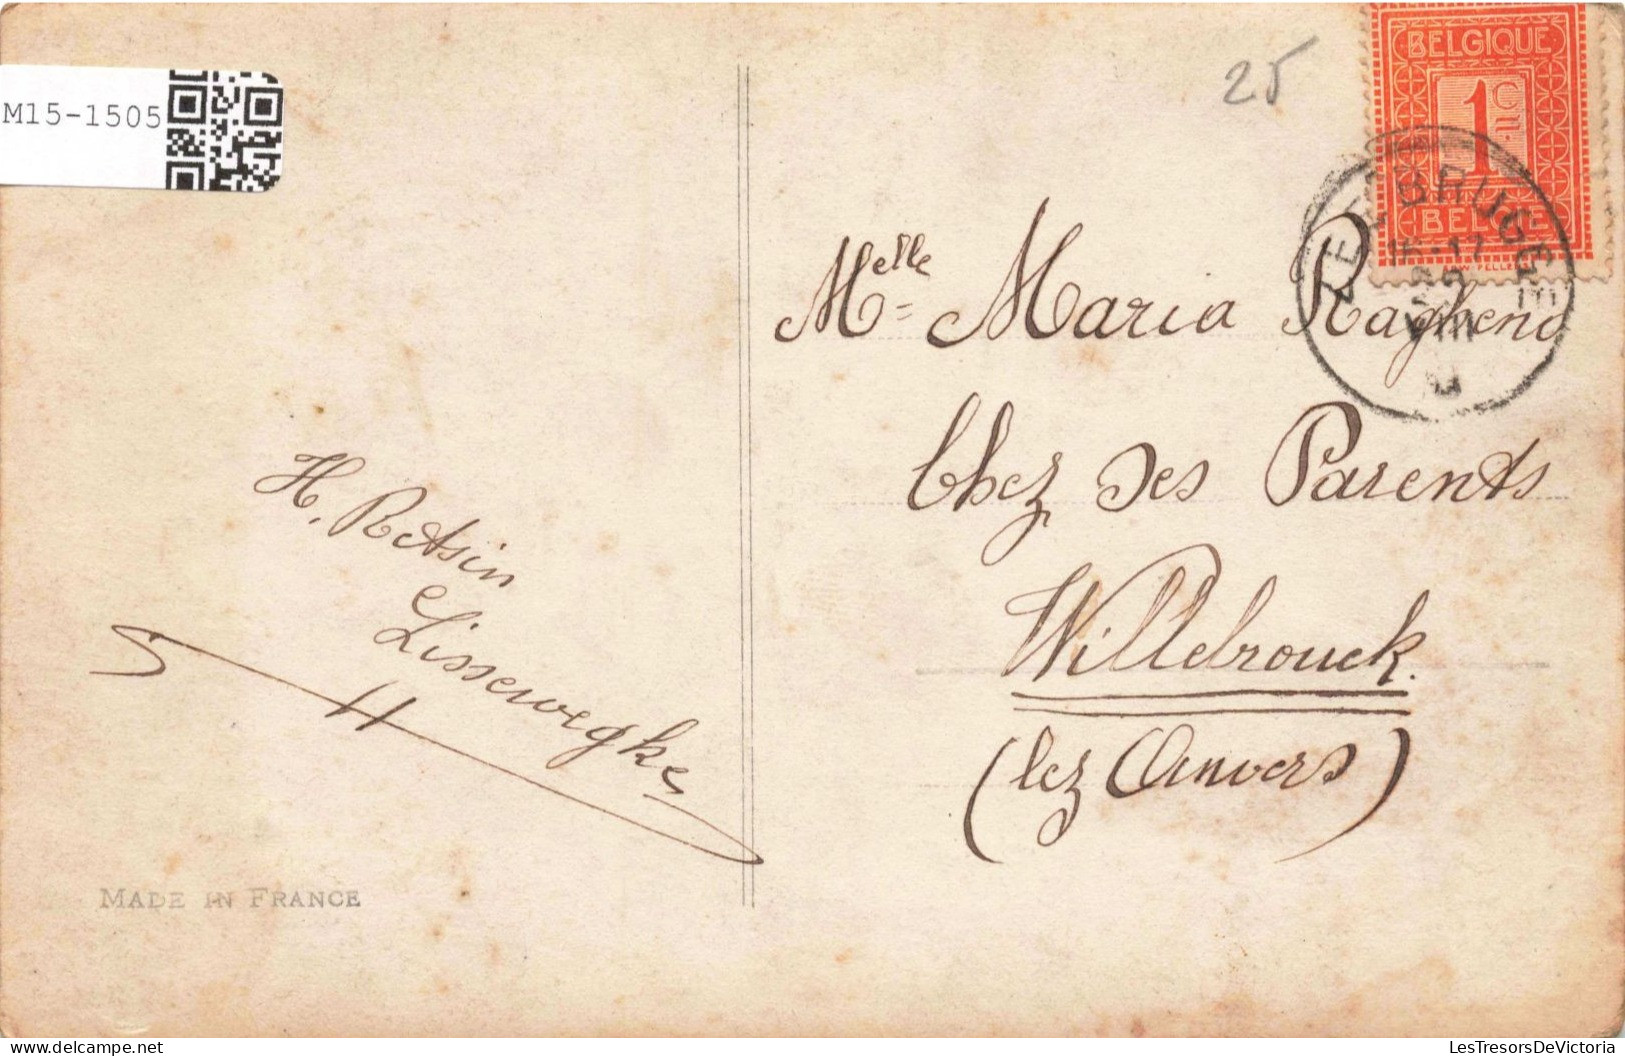 M15-1505
25
BELGIQUE
1 C
BELGIE
ZEEBRUGGE
16-17
Melle MariaRagheno
Chez Ses Parents
Willebrouck.
(lez Anvers)
H. Retsin
Lisseweghe
MADE IN FRANCE
LesTresorsDeVictoria